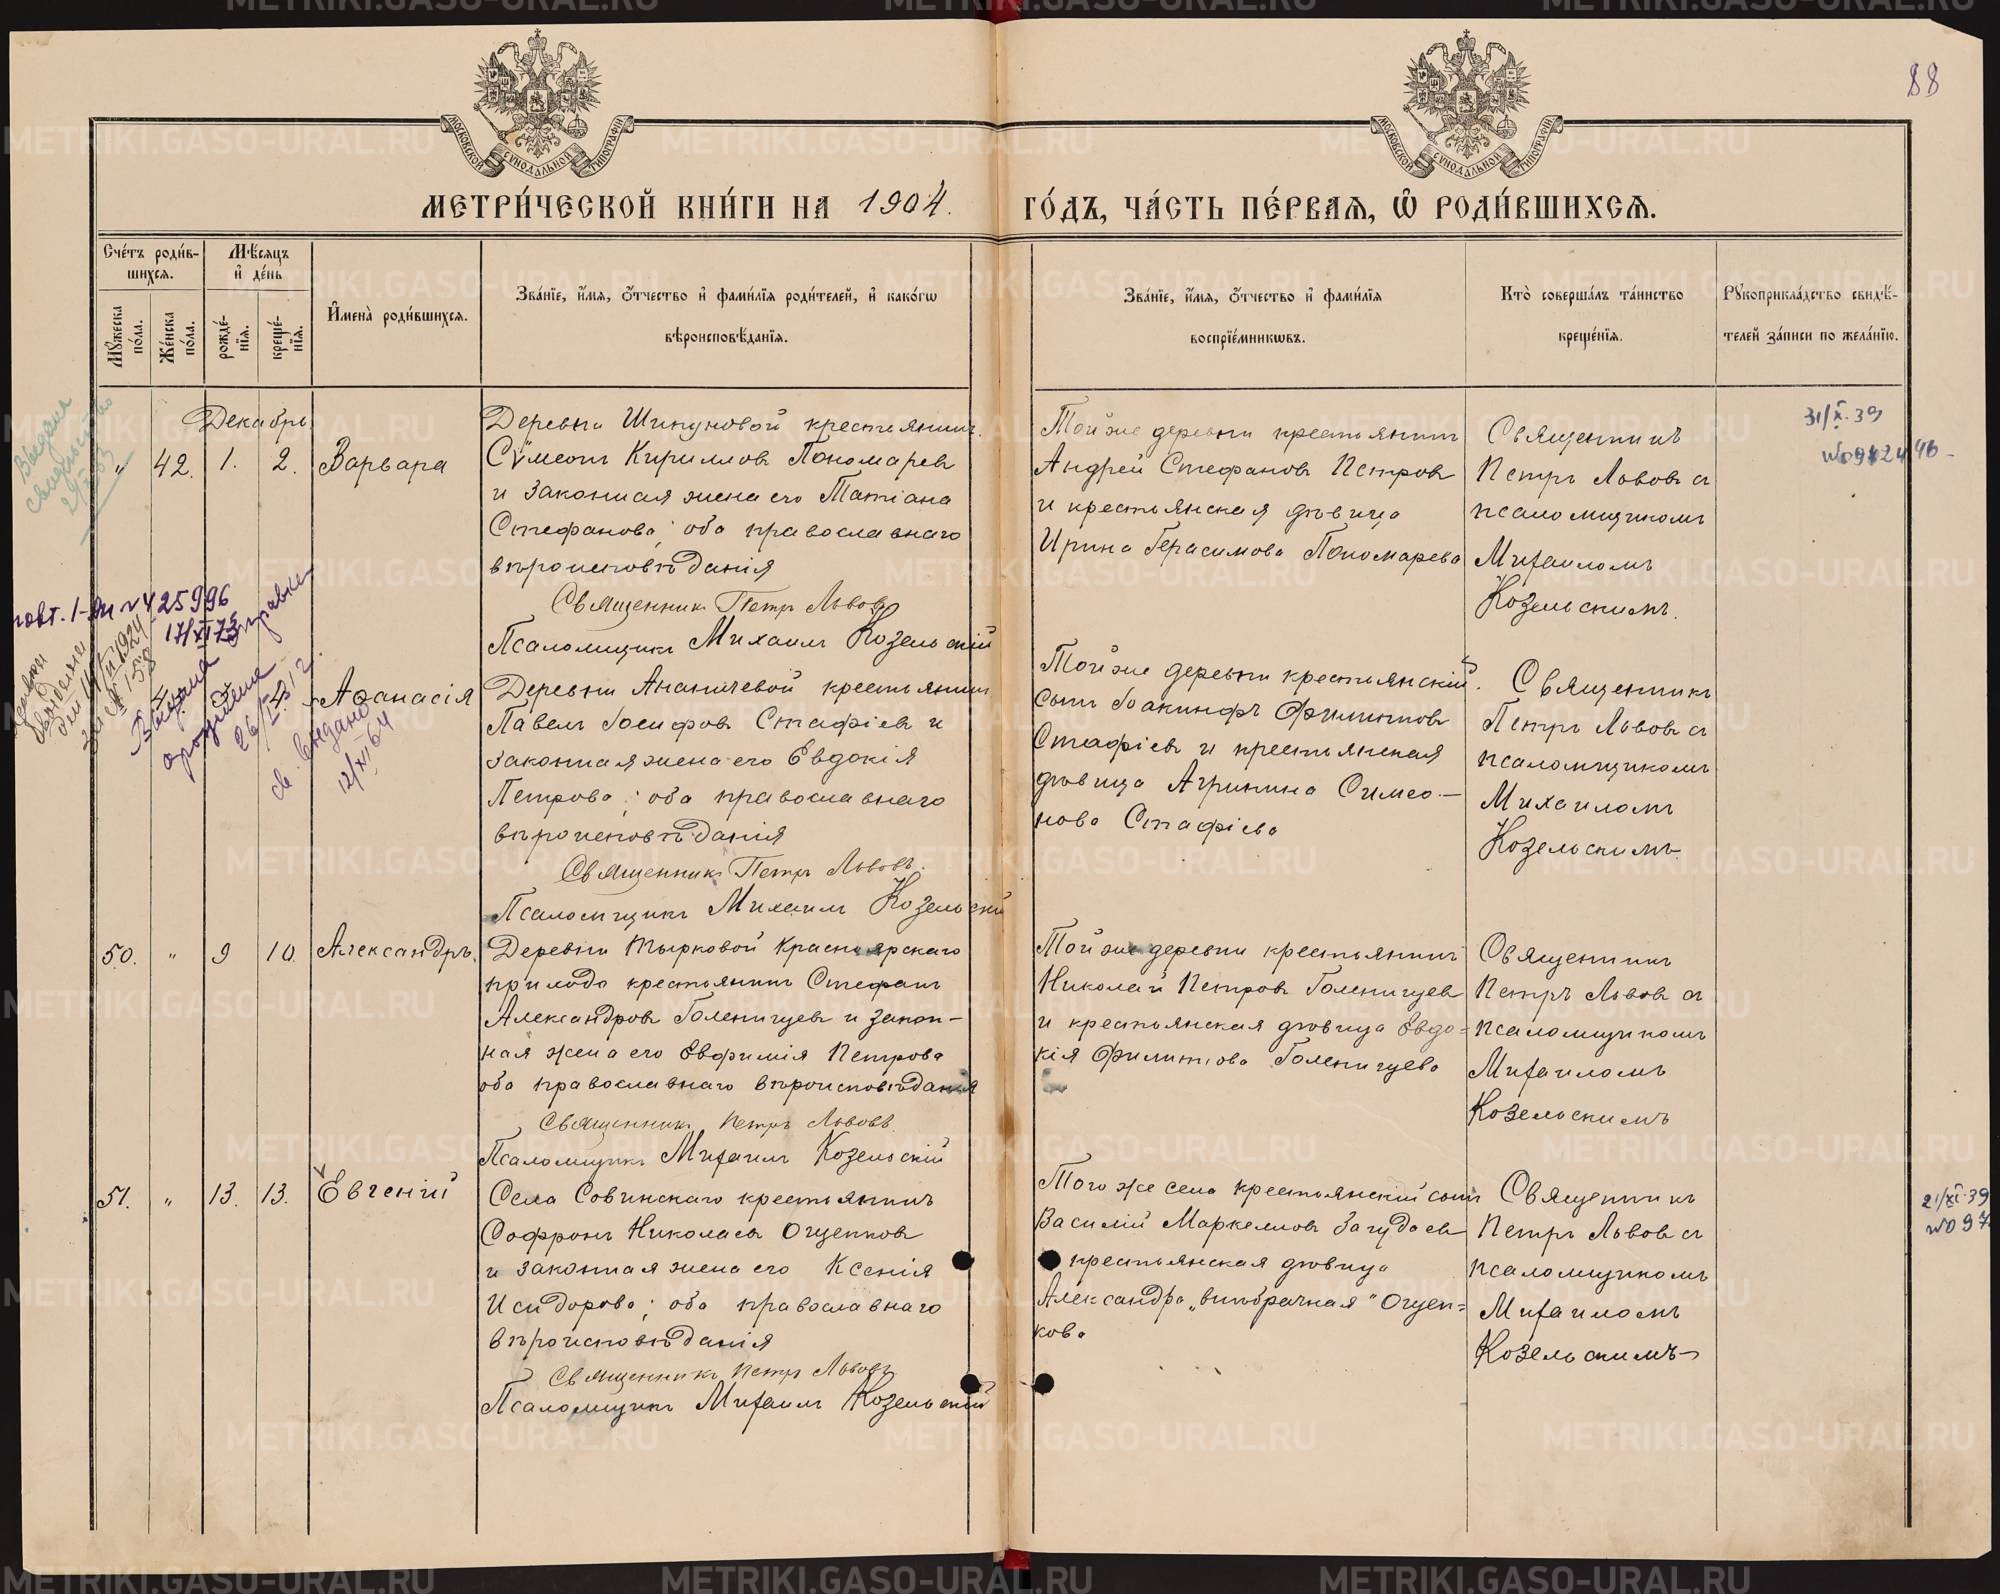 88
МОСКОВСКОЙ СѴНОДАЛЬНОЙ ТИПОГРАФІИ
МОСКОВСКОЙ СѴНОДАЛЬНОЙ ТИПОГРАФІИ
МЕТРИ́ЧЕСКОЙ КНИ́ГИ НА 1904. ГО́ДЪ, ЧА́СТЬ ПЕ́РВАѦ, Ѡ҆ РОДИ́ВШИХСѦ.
Сче́тъ роди́в-
шихсѧ.
Мѣ́сѧцъ
и҆ де́нь
Мꙋ́жеска
по́ла.
Же́нска
по́ла.
рожде́-
нїѧ.
креще́-
нїѧ.
И҆мена̀ роди́вшихсѧ.
Зва́нїе, и҆́мѧ, ѻ҆́тчество и҆ фами́лїѧ роди́телей, и҆ како́гѡ
вѣроисповѣ́данїѧ.
Зва́нїе, и҆́мѧ, ѻ҆́тчество и҆ фами́лїѧ
воспрїе́мникѡвъ.
Кто̀ соверша́лъ та́инство
креще́нїѧ.
Рꙋкоприкла́дство свидѣ́-
телей за́писи по жела́нїю.
Декабрь
„ 42. 1. 2. Варвара
Деревни Шипуновой крестьянинъ
Сѵмеонъ Кирилловъ Пономаревъ
и законная жена его Татіана
Стефанова; оба православнаго
вѣроисповѣданія
Священникъ Петръ Львовъ
Псаломщикъ Михаилъ Козельскій
Той же деревни крестьянинъ
Андрей Стефановъ Петровъ
и крестьянская дѣвица
Ирина Герасимова Пономарева
Священникъ
Петръ Львовъ съ
псаломщикомъ
Михаиломъ
Козельскимъ.
31/X.39
17/XI 73
Выдана справка
о рождении
26/
св. выдано
12/XI 64
4 Аѳанасія
Деревни Ананичевой крестьянинъ
Павелъ Іосифовъ Стафіевъ и
законная жена его Евдокія
Петрова; оба православнаго
вѣроисповѣданія
Священникъ Петръ Львовъ.
Псаломщикъ Михаилъ Козельскій
Той же деревни крестьянскій
сынъ Іоакинфъ Филипповъ
Стафіевъ и крестьянская
дѣвица Агрипина Симео-
нова Стафіева
Священникъ
Петръ Львовъ съ
псаломщикомъ
Михаиломъ
Козельскимъ
50. „ 9 10. Александръ.
Деревни Тырковой Красноярскаго
прихода крестьянинъ Стефанъ
Александровъ Голенищевъ и закон-
ная жена его Евфимія Петрова
оба православнаго вѣроисповѣданія
Священникъ Петръ Львовъ
Псаломщикъ Михаилъ Козельскій
Той же деревни крестьянинъ
Николай Петровъ Голенищевъ
и крестьянская дѣвица Евдо=
кія Филиппова Голенищева
Священникъ
Петръ Львовъ съ
псаломщикомъ
Михаиломъ
Козельскимъ
51. „ 13. 13. Евгеній
Села Совинскаго крестьянинъ
Софронъ Николаевъ Ощепковъ
и законная жена его Ксенія
Исидорова; оба православнаго
вѣроисповѣданія
Священникъ Петръ Львовъ
Псаломщикъ Михаилъ Козельскій
Того же села крестьянскій сынъ
Василій Маркелловъ Загудаевъ
крестьянская дѣвица
Александра „внѣбрачная" Ощеп=
кова
Священникъ
Петръ Львовъ съ
псаломщикомъ
Михаиломъ
Козельскимъ
21/XI.39
METRIKI.GASO-URAL.RU